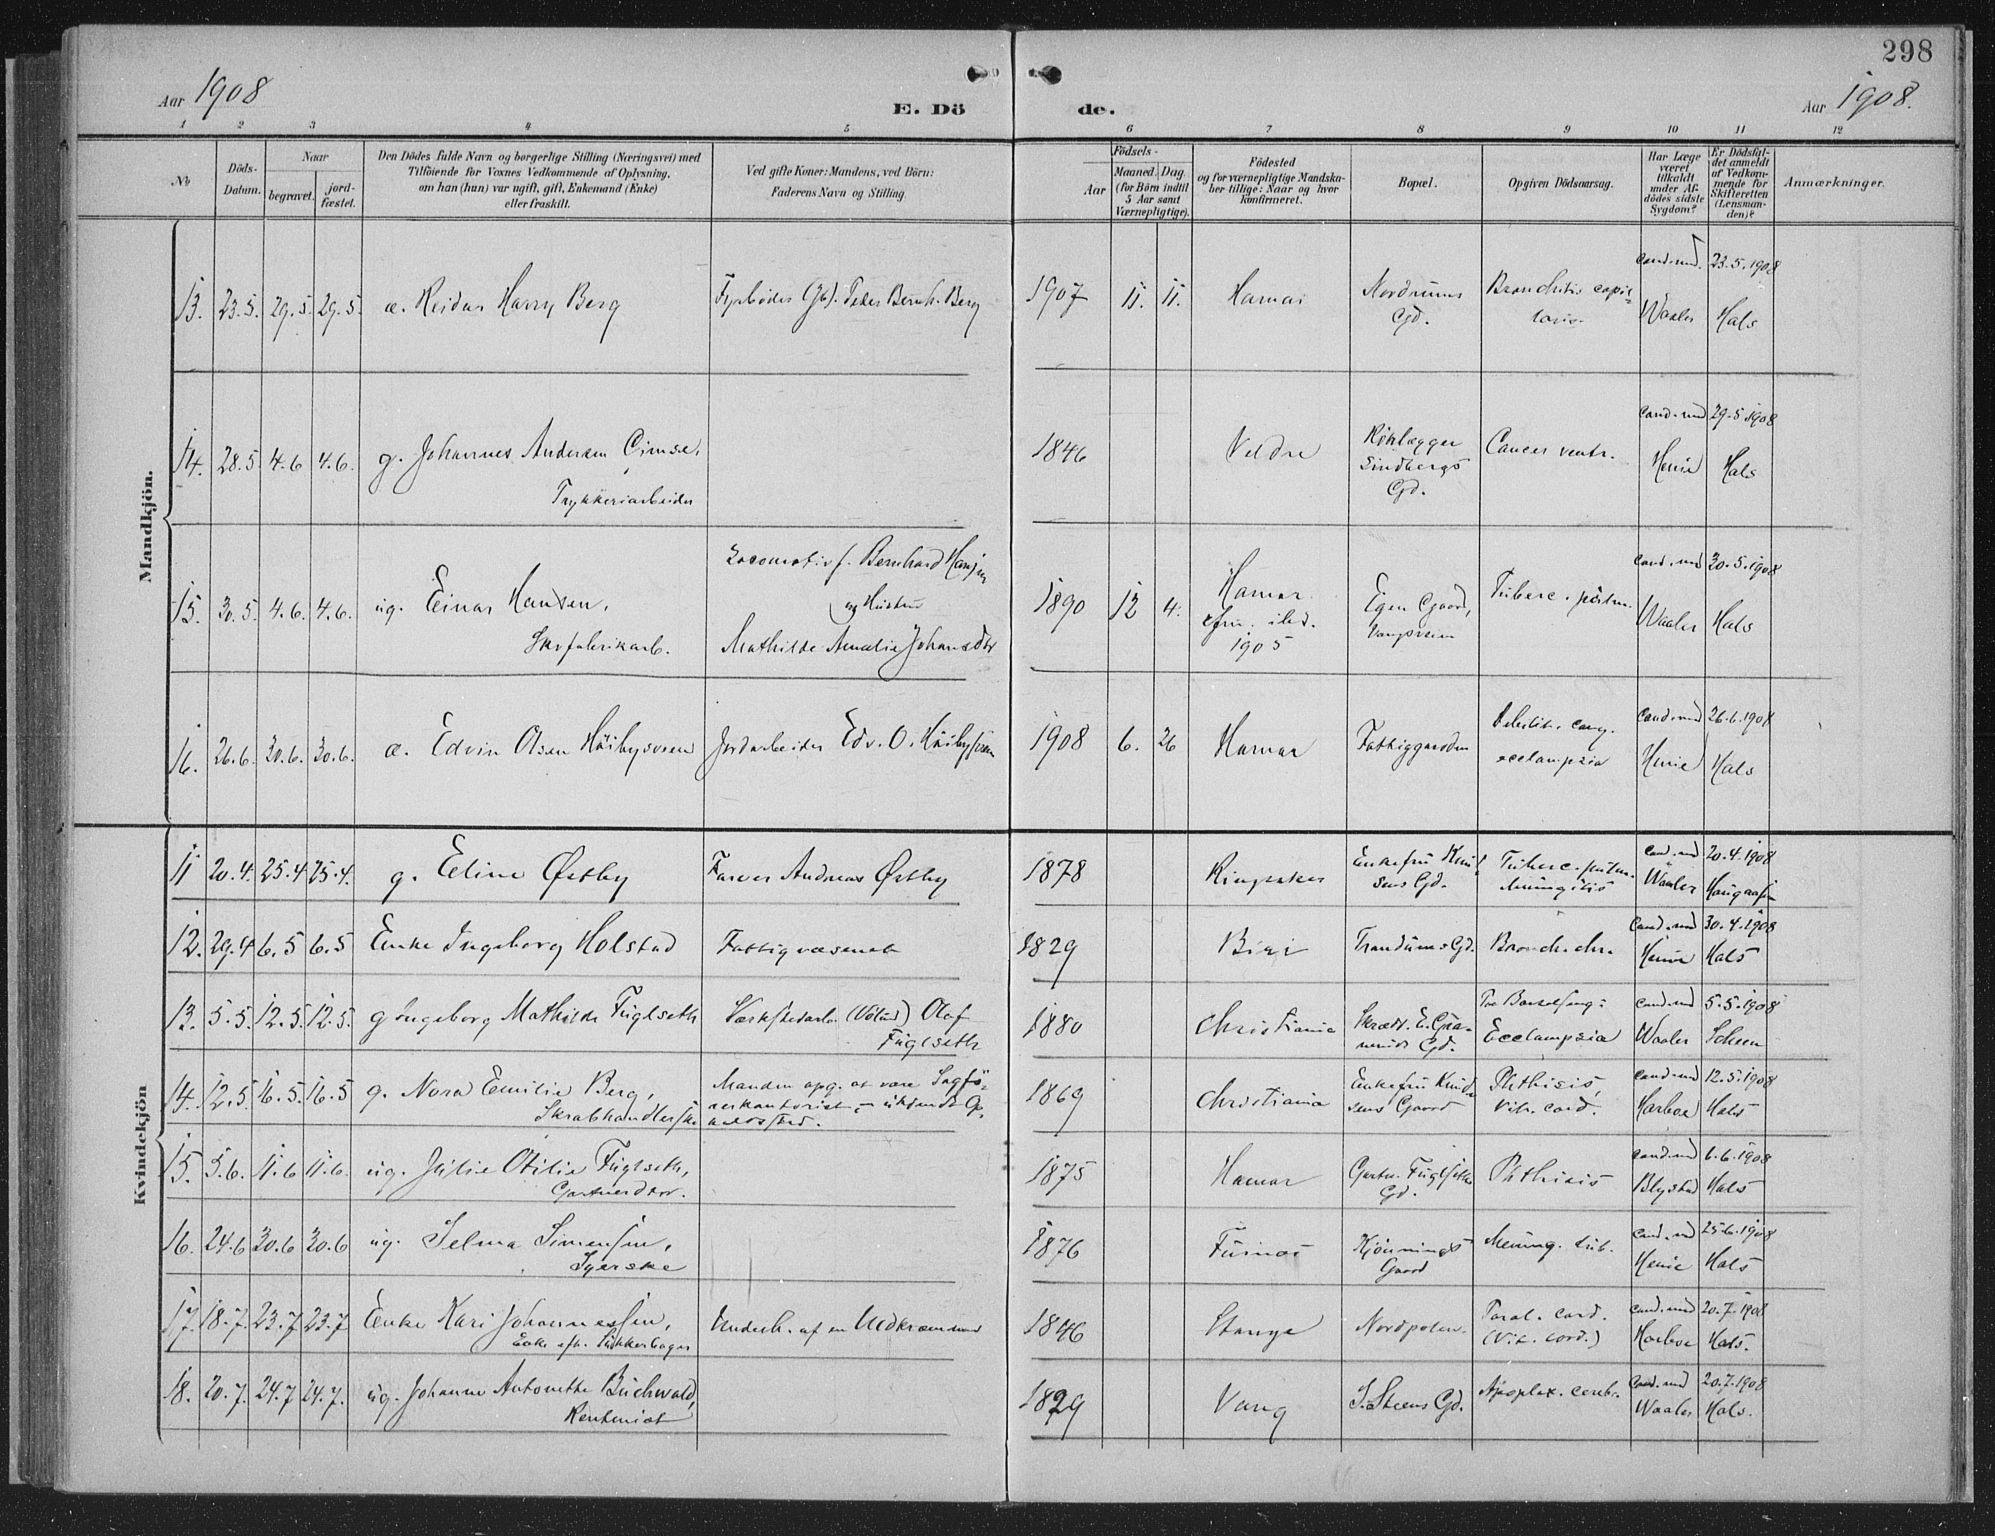 298
Aar 1908
E. Dö
de.
Aar 1908.
1 2 3 4 5 6 7 8 9 10 11 12
No
Döds-Datum.
Naar
begravet.
jord-fæstet.
Den Dödes fulde Navn og borgerlige Stilling (Næringsvei) med
Tilföiende for Voxnes Vedkommende af Oplysning,
om han (hun) var ugift, gift, Enkemand (Enke)
eller fraskilt.
Ved gifte Koner: Mandens, ved Börn:
Faderens Navn og Stilling.
Födsels-
Aar
Maaned. Dag.
(for Börn indtil
5 Aar samt
Værnepligtige).
Födested
og for værnepligtige Mandska-
ber tillige: Naar og hvor
konfirmeret.
Bopæl.
Opgiven Dödsaarsag.
Har Læge
været
tilkaldt
under Af-
dödes sidste
Sygdom?
Er Dödsfal-
det anmeldt
af Vedkom-
mende for
Skifteretten
(Lensman-
den)?
Anmærkninger.
Mandkjön.
13. 23.5. 29.5. 29.5. æ. Reidar Harry Berg Fyrbøder Peter Bernh. Berg 1907 11. 11. Hamar Nordrums Gd. Bronchitis capillaris cand. med. Waaler 23.5.1908 Hals
14. 28.5 4.6 4.6. g. Johannes Andersen Cimse, Trykkeriarbeider 1846 Veldre Rørlægger Sindbergs Gd. Cancer ventr. cand. med Henie 29.5.1908 Hals
15. 30.5 4.6. 4.6. ug. Einar Hansen, Skofabrikarb. Locomotivf. Bernhard Hansen og Hustru Mathilde Amalie Johansdtr 1890 12 4. Hamar 1905 Egen Gaard, Vangsveien Tuberc. pulm. cand. med Waaler 30.5.1908 Hals
16. 26.6. 30.6. 30.6. æ. Edvin Olsen Häibysveen Jordarbeider Edv. O. Häibysveen 1908 6. 26 Hamar Fattiggaarden cong. ecclampsia cand. med Henie 26.6.1908 Hals
Kvindekjön
11 20.4. 25.4 25.4. g. Eline Østby Farver Andreas Østby 1878 Ringsaker Enkefru Knudsens Gd. Tuberc. pulm. Meningitis cand. med Waaler 20.4.1908
12. 29.4 6.5 6.5 Enke Ingeborg Holstad Fattigvæsenet 1829 Biri Trandums Gd. Bronch. chr. cand. med Henie 30.4.1908 Hals
13. 5.5. 12.5. 12.5. g Ingeborg Mathilde Fuglseth Værkstedarb. Olaf Fuglseth 1880 Christiania Skrædd. E. Gd. Ecclampsia cand. med Waaler 5.5.1908 Scheen
14. 12.5. 16.5. 16.5 g. Nora Emilie Berg, Skrabhandlerske Manden opg. at være Sagførerkontorist, ukjendt Opholdssted. 1869 Christiania Enkefru Knudsens Gaard Phthisis, Vit. cord. cand. med Harboe 12.5.1908 Hals
15. 5.6. 11.6 11.6. ug. Julie Otilie Fuglseth, Gartnerdtr. 1875 Hamar Gartn. Fuglseths Gd. Phthisis cand. med Blystad 6.6.1908 Hals
16. 24.6 30.6 30.6 ug. Selma Simensen, Syerske 1876 Furnes Kjønnings Gaard Mening. tub. cand. med Henie 25.6.1908 Hals
17. 18.7. 23.7 23.7 Enke Kari Johannessen, Enke eft. Sukkerbager Underh. af en 1846 Stange Nordpolen. Paral. cord. (Vit. cord.) cand. med Harboe 20.7.1908 Hals.
18. 20.7. 24.7 24.7. ug. Johanne Antonette Buchwald, Rentenist 1829 Vang S. Steens Gd. Apoplex. cerebr. cand. med Waaler 20.7.1908 Hals.